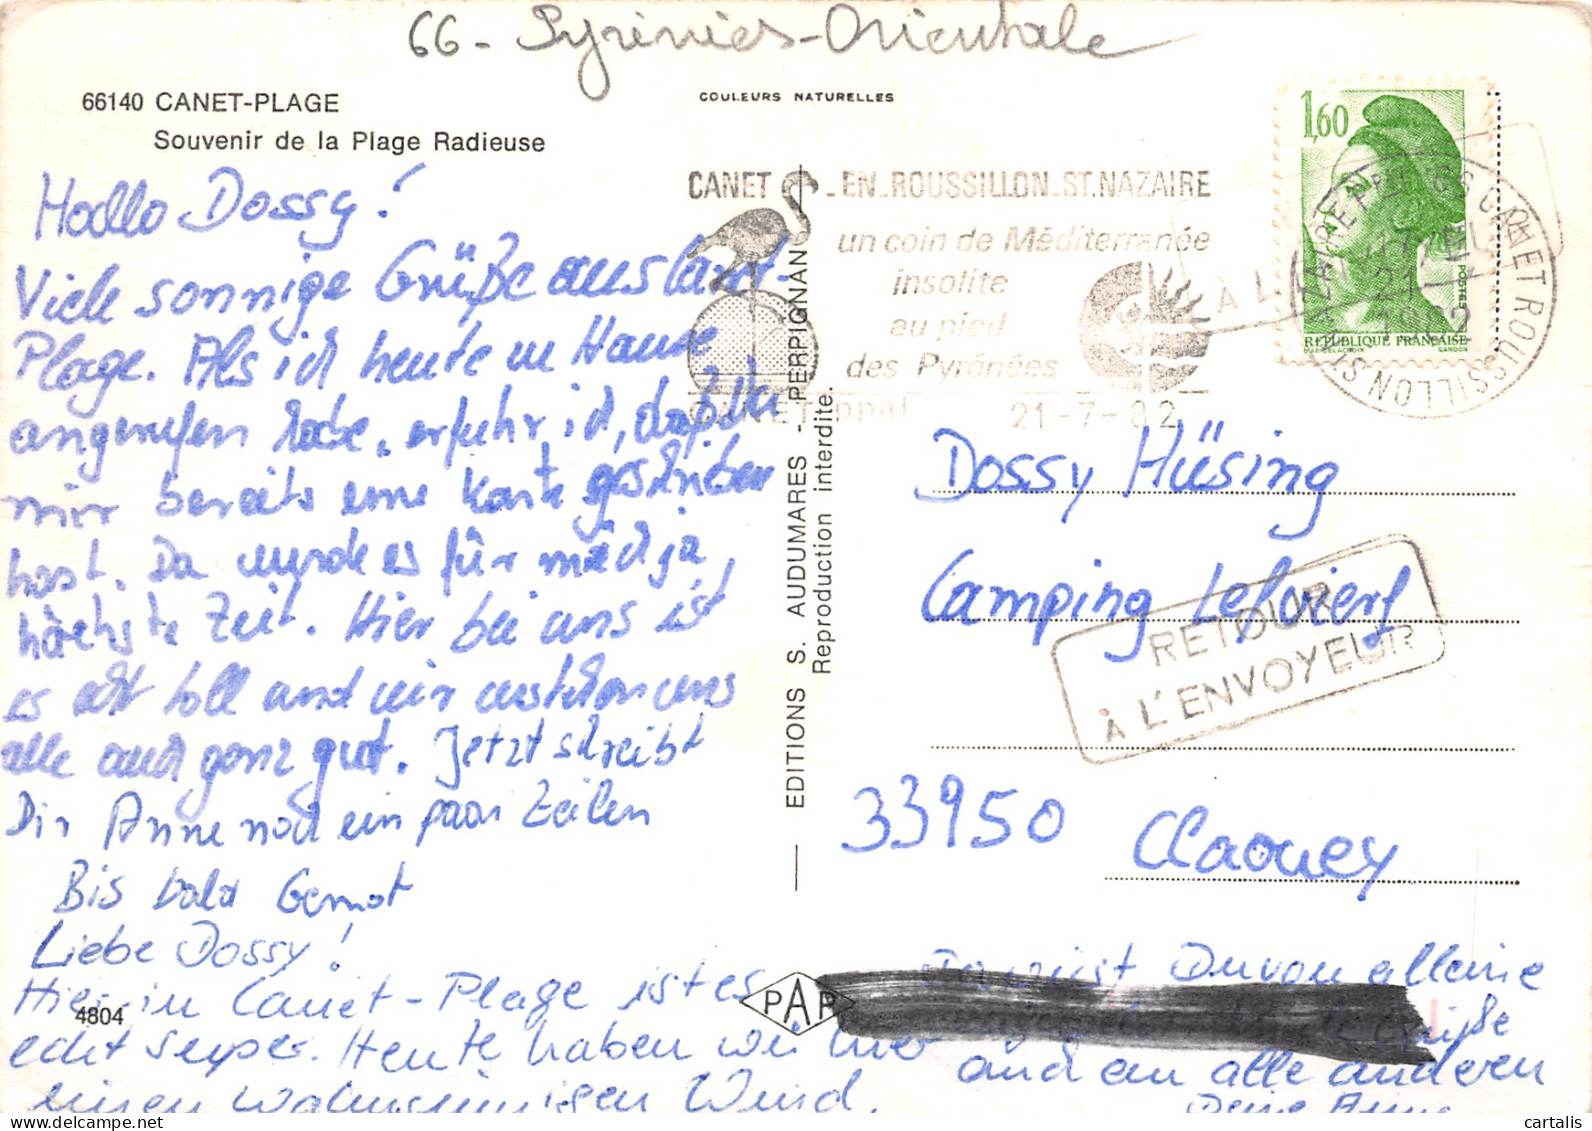 66 - Pyrénées-Orientale
66140 CANET-PLAGE
Souvenir de la Plage Radieuse
COULEURS NATURELLES
1,60
POSTES
REPUBLIQUE FRANÇAISE
D'AP. DELACROIX GANDON
CANET - EN - ROUSSILLON - ST. NAZAIRE
un coin de Méditerranée
insolite
au pied
des Pyrénées
CANET ppal 21-7-82
21-7
1982
CANET ROUSSILLON ST NAZAIRE
Hallo Dossy!
Viele sonnige Grüße aus Canet-
Plage. Als ich heute zu Hause
angerufen habe, erfuhr ich, daß Du
mir bereits eine Karte geschrieben
hast. Da wurde es für mich ja
höchste Zeit. Hier bei uns ist
es echt toll und wir verstehen uns
alle auch ganz gut. Jetzt schreibt
Dir Anne noch ein paar Zeilen
Bis bald Gernot
Liebe Dossy!
Hier in Canet-Plage ist es
echt super. Heute haben wir hier
einen wahnsinnigen Wind.
Da wirst Du von alleine
Grüße
und an alle anderen
Deine Anne
EDITIONS S. AUDUMARES - PERPIGNAN
Reproduction interdite.
Dossy Hüsing
Camping
RETOUR
À L'ENVOYEUR
33950 Claouey
4804
PAP
www.cartalis.com
cartalis